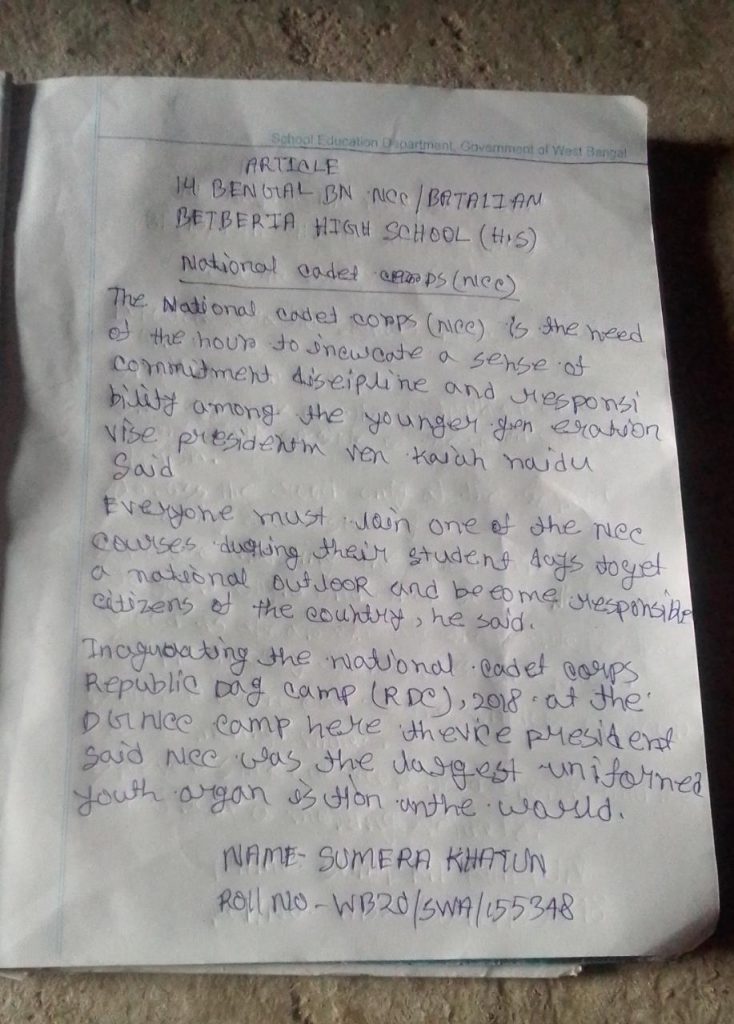 School Education Department, Government of West Bengal
ARTICLE
14 BENGIAL BN NCC/BATALIAN
BETBERIA HIGH SCHOOL (H.S)
National cadet corps (ncc)
The National cadet corps (ncc) is the need
of the hour to inewcate a sense of
commitment diseipline and responsi
bility among the younger gen eration
vise presidentm ven kaiah naidu
Said
Everyone must join one of the ncc
courses during their student days toget
a national outlook and become responsible
citizens of the country, he said.
Inaguoating the national cadet corps
Republic Day camp (RDC), 2018 at the
DGNCC camp here thevice president
said NCC was the largest uniformed
youth organ is tion inthe world.
NAME- SUMERA KHATUN
Roll NO.- WB20/SWA/155348